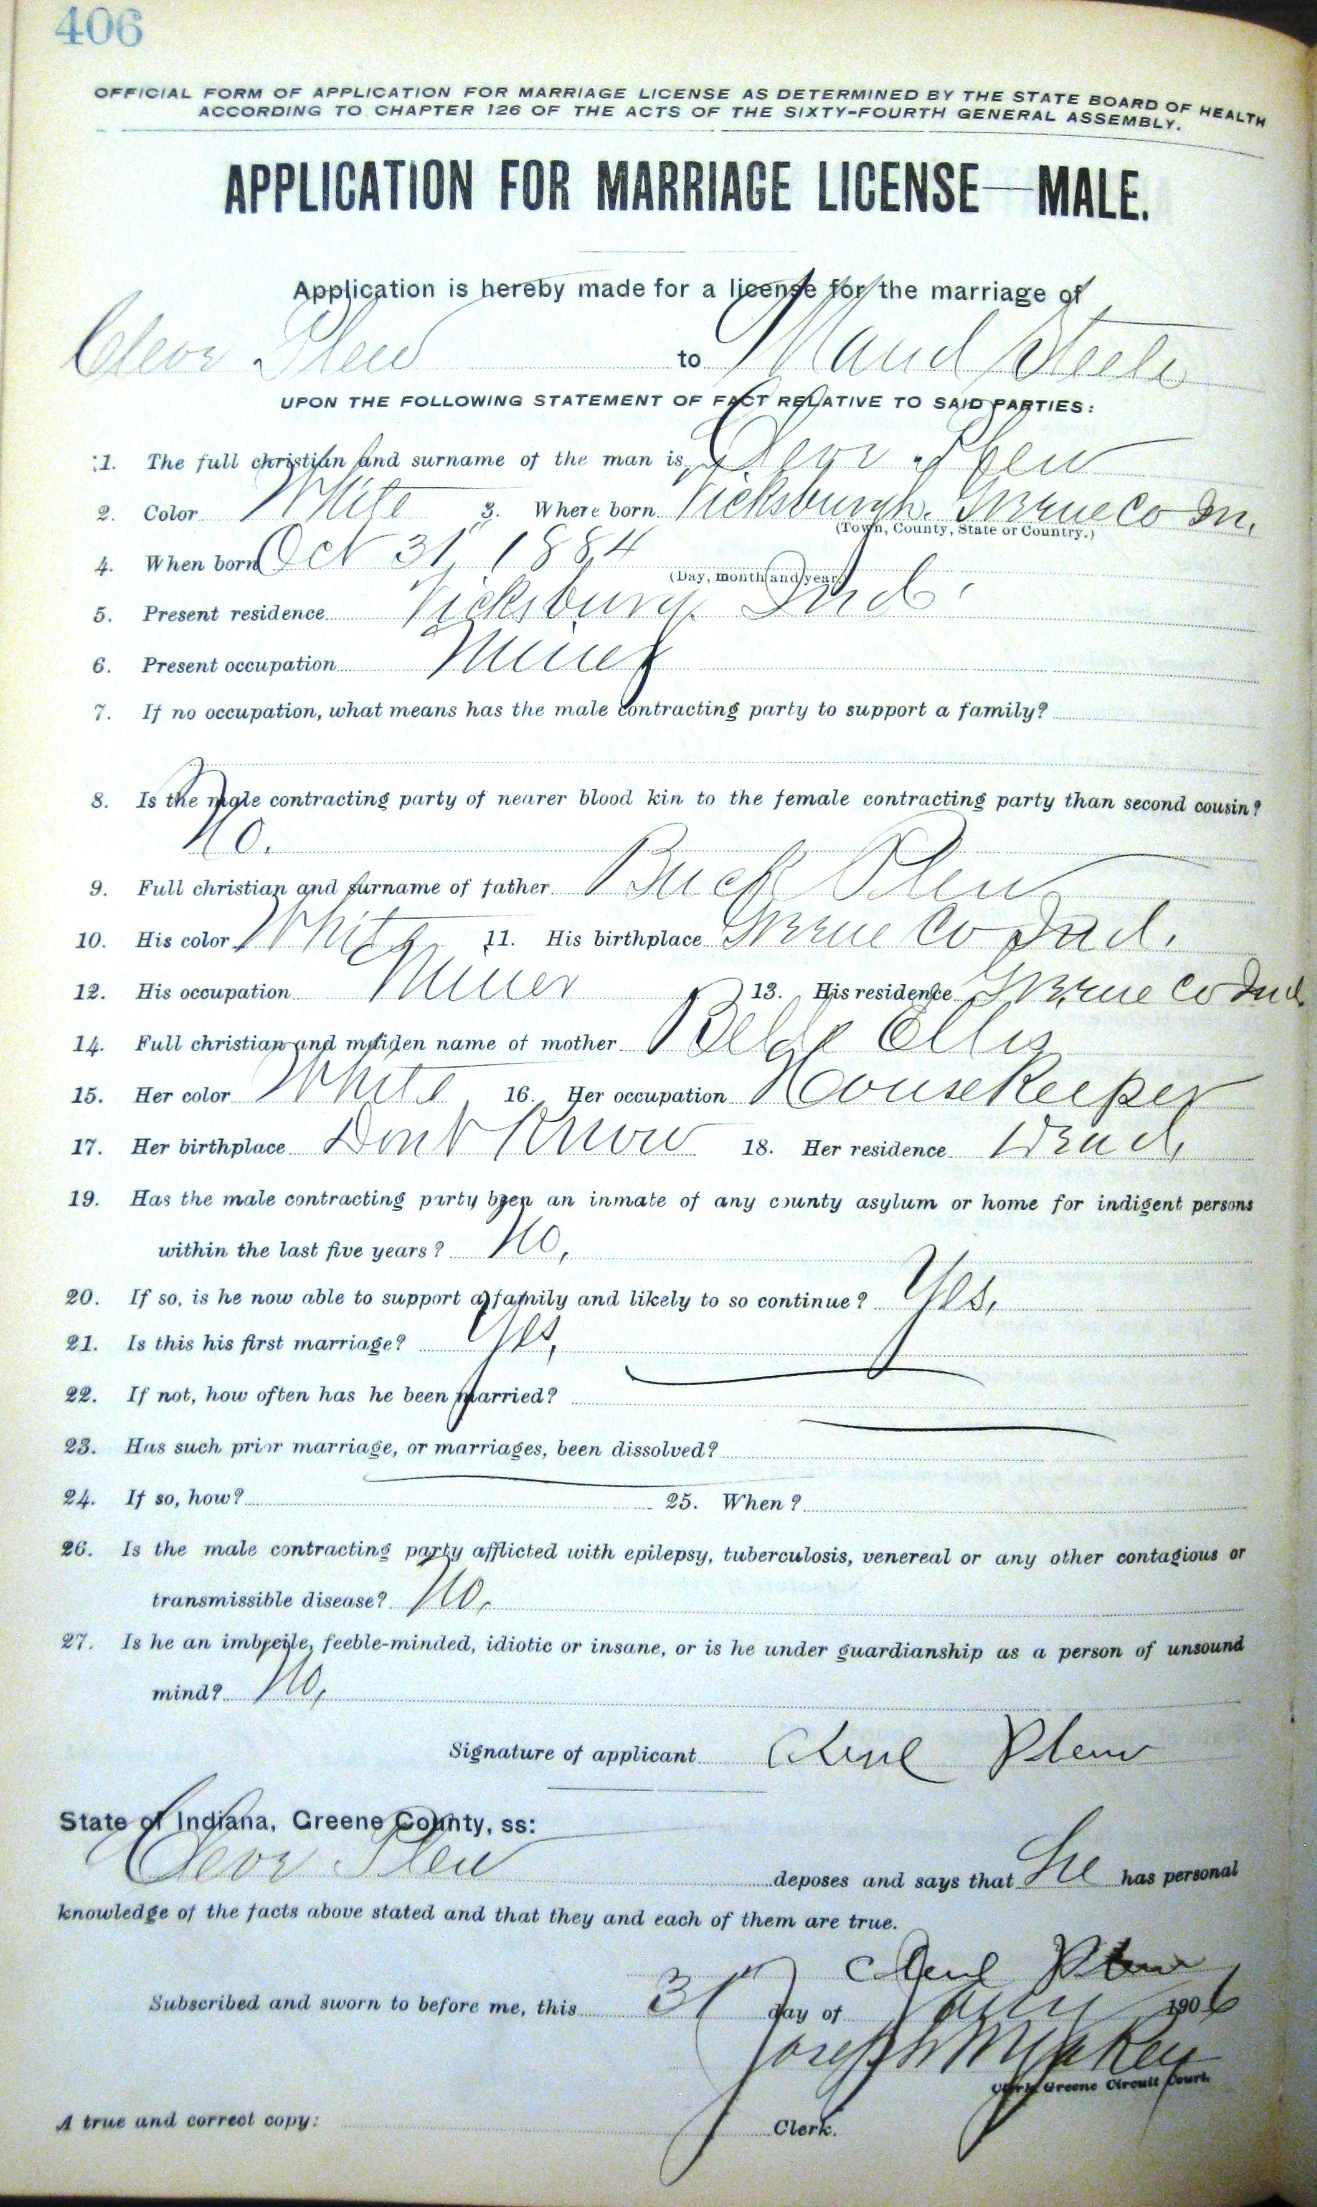 406
OFFICIAL FORM OF APPLICATION FOR MARRIAGE LICENSE AS DETERMINED BY THE STATE BOARD OF HEALTH
ACCORDING TO CHAPTER 126 OF THE ACTS OF THE SIXTY-FOURTH GENERAL ASSEMBLY.
APPLICATION FOR MARRIAGE LICENSE—MALE.
Application is hereby made for a license for the marriage of
Cleve Plew to Maud Steele
UPON THE FOLLOWING STATEMENT OF FACT RELATIVE TO SAID PARTIES:
1. The full christian and surname of the man is Cleve Plew
2. Color White 3. Where born Vicksburgh. Greene Co In.
(Town, County, State or Country.)
4. When born Oct 31" 1884
(Day, month and year)
5. Present residence Vicksburg. Ind.
6. Present occupation Miner
7. If no occupation, what means has the male contracting party to support a family?
8. Is the male contracting party of nearer blood kin to the female contracting party than second cousin?
No.
9. Full christian and surname of father Buck Plew
10. His color White 11. His birthplace Greene Co Ind.
12. His occupation Miner 13. His residence Greene Co Ind
14. Full christian and maiden name of mother Belle Ellis
15. Her color White 16. Her occupation Housekeeper
17. Her birthplace Dont Know 18. Her residence Dead,
19. Has the male contracting party been an inmate of any county asylum or home for indigent persons
within the last five years? No,
20. If so, is he now able to support a family and likely to so continue? Yes,
21. Is this his first marriage? Yes,
22. If not, how often has he been married?
23. Has such prior marriage, or marriages, been dissolved?
24. If so, how? 25. When?
26. Is the male contracting party afflicted with epilepsy, tuberculosis, venereal or any other contagious or
transmissible disease? No,
27. Is he an imbecile, feeble-minded, idiotic or insane, or is he under guardianship as a person of unsound
mind? No,
Signature of applicant Cleve Plew
State of Indiana, Greene County, ss:
Cleve Plew deposes and says that he has personal
knowledge of the facts above stated and that they and each of them are true.
Cleve Plew
Subscribed and sworn to before me, this 31" day of July 1906
Joseph
Clerk Greene Circuit Court.
A true and correct copy: Clerk.